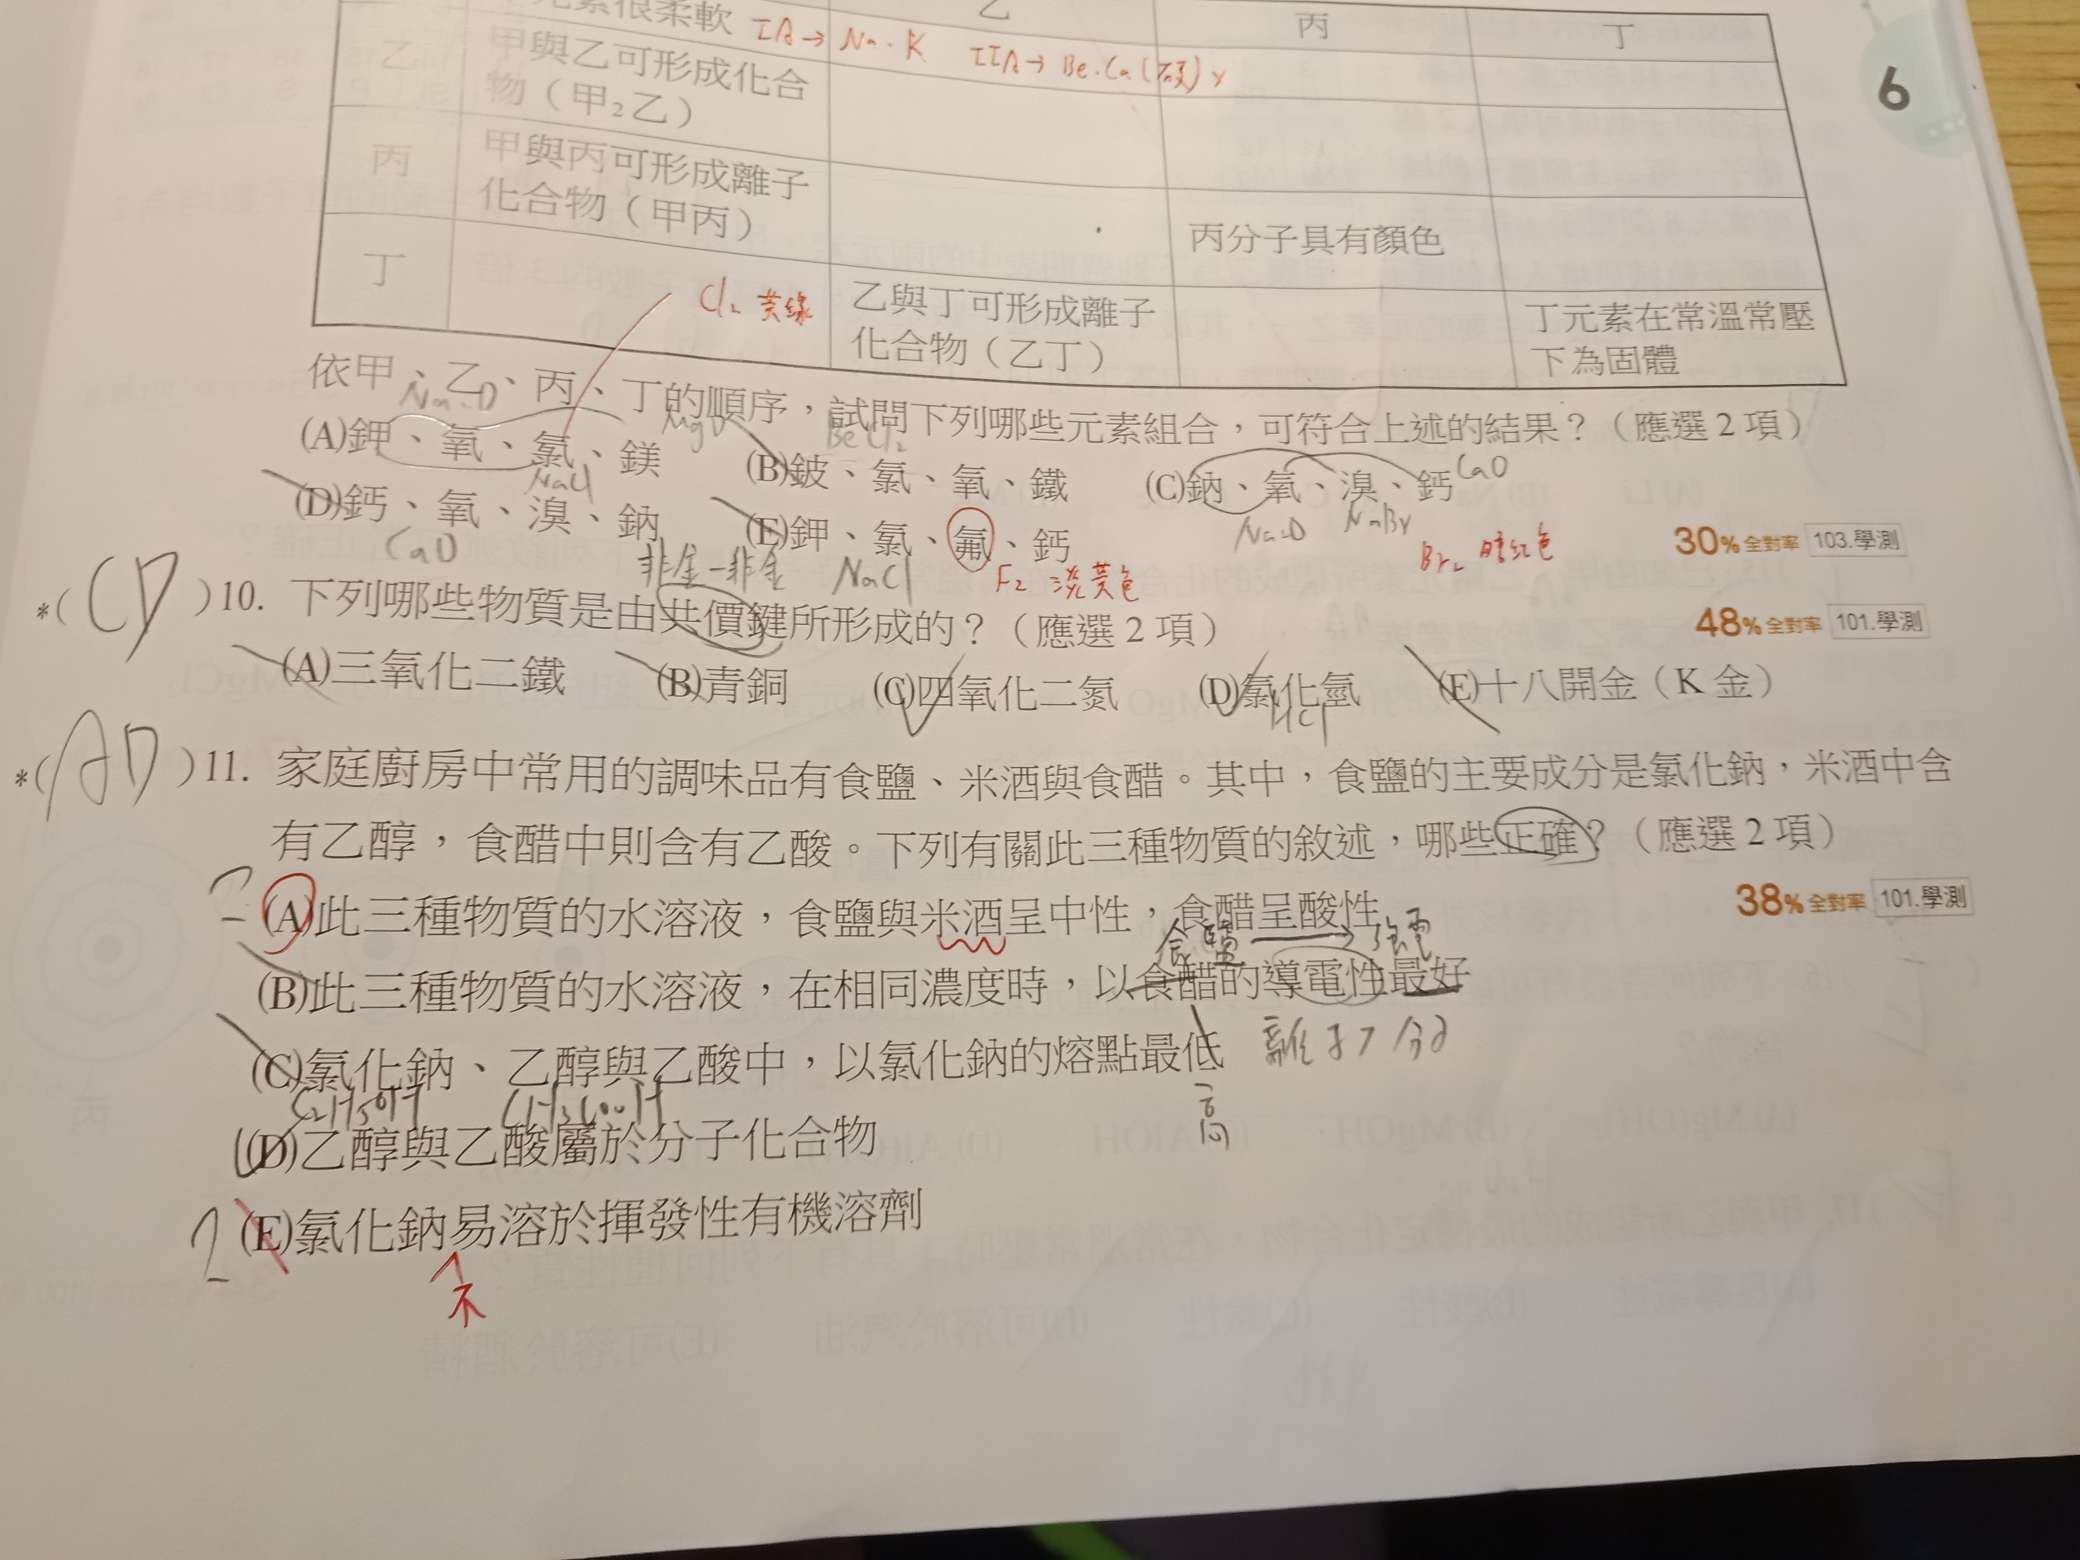 元素很柔軟 IA→ Na、K IIA→ Be、Ca(硬)
乙
丙
丁
乙
甲與乙可形成化合
物（甲₂乙）
6
丙
甲與丙可形成離子
化合物（甲丙）
丙分子具有顏色
丁
Cl₂ 黃綠
乙與丁可形成離子
化合物（乙丁）
丁元素在常溫常壓
下為固體
依甲、乙、丙、丁的順序，試問下列哪些元素組合，可符合上述的結果？（應選2項）
MgO BeCl₂
(A)鉀、氧、氯、鎂 (B)鈹、氯、氧、鐵 (C)鈉、氧、溴、鈣 CaO
NaCl Na₂O NaBr
(D)鈣、氧、溴、鈉 (E)鉀、氯、氟、鈣
30%全對率 103.學測
CaO 非金-非金 NaCl F₂ 淡黃色 Br₂ 暗紅色
*(CD)10. 下列哪些物質是由共價鍵所形成的？（應選2項）
48%全對率 101.學測
(A)三氧化二鐵 (B)青銅 (C)四氧化二氮 (D)氯化氫 (E)十八開金（K金）
HCl
*(AD)11. 家庭廚房中常用的調味品有食鹽、米酒與食醋。其中，食鹽的主要成分是氯化鈉，米酒中含
有乙醇，食醋中則含有乙酸。下列有關此三種物質的敘述，哪些正確？（應選2項）
38%全對率 101.學測
(A)此三種物質的水溶液，食鹽與米酒呈中性，食醋呈酸性
食鹽 → 強電
(B)此三種物質的水溶液，在相同濃度時，以食醋的導電性最好
(C)氯化鈉、乙醇與乙酸中，以氯化鈉的熔點最低 離子>分子
高
C₂H₅OH CH₃COOH
(D)乙醇與乙酸屬於分子化合物
(E)氯化鈉易溶於揮發性有機溶劑
不